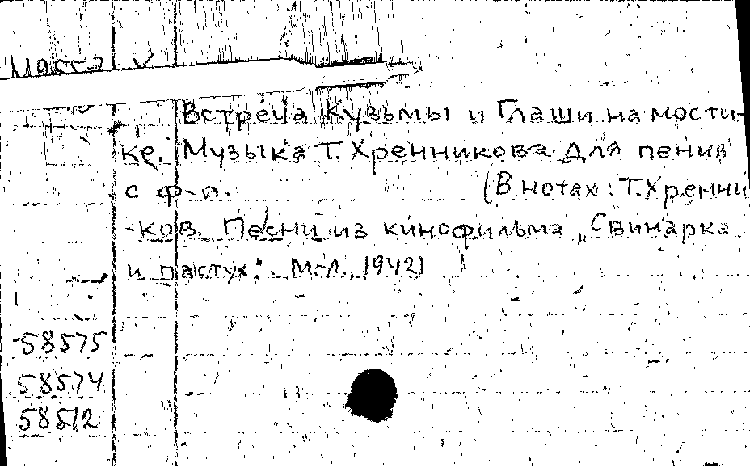 М9557 V
Встреча Кузьмы и Глаши на мости-
ке. Музыка Т. Хренникова Для пения
с ф-п. (В нотах: Т. Хренни
-ков. Песни из кинофильма „Свинарка
и пастух". М-Л., 1942)
58575
58574
58512